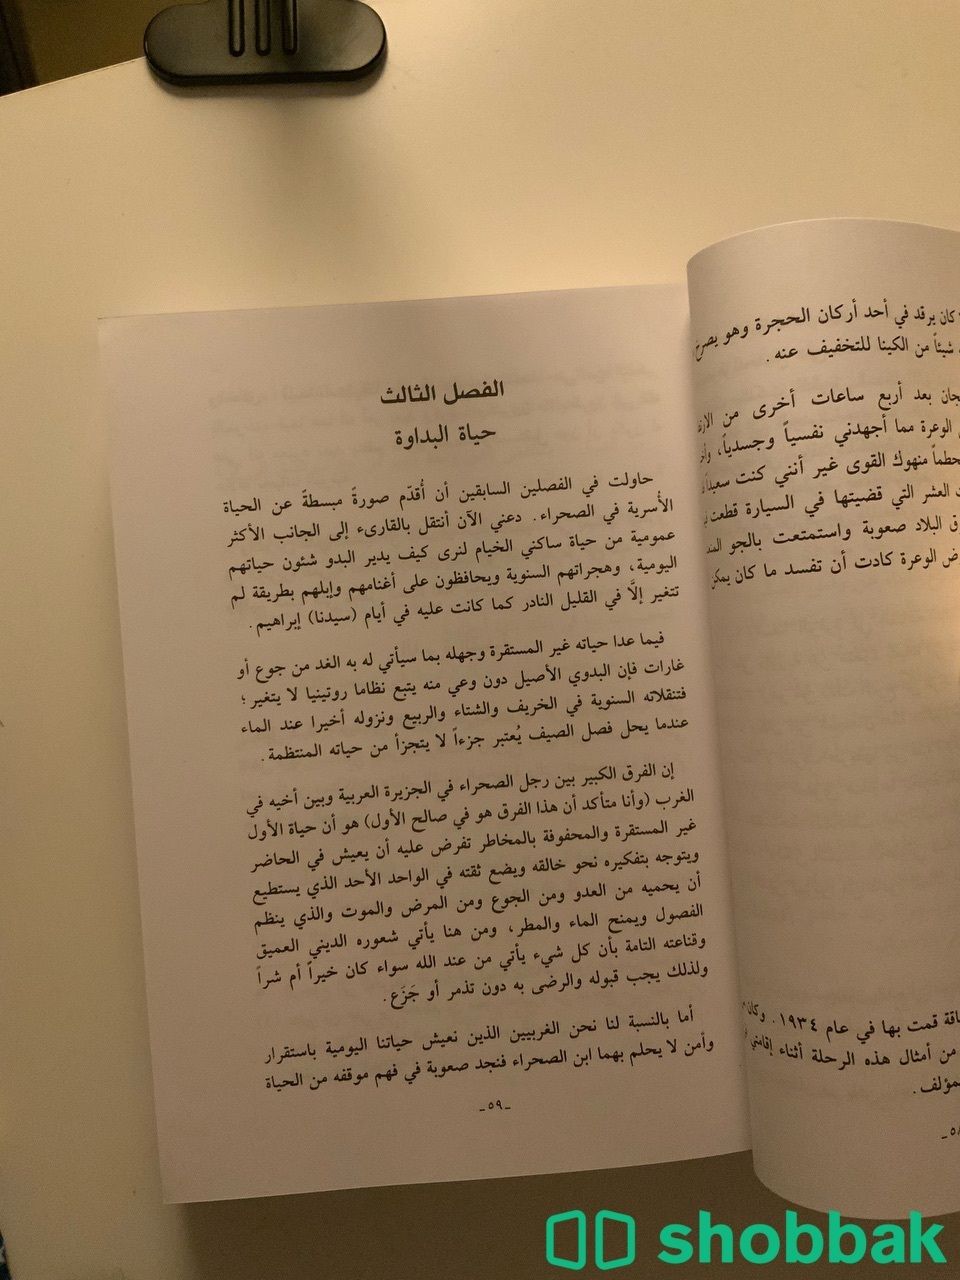 كان يرقد في أحد أركان الحجرة وهو يصرخ
شيئاً من الكينا للتخفيف عنه .
بعد أربع ساعات أخرى من
الوعرة مما أجهدني نفسياً وجسدياً،
منهوك القوى غير أنني كنت سعيداً
العشر التي قضيتها في السيارة قطعت
البلاد صعوبة واستمتعت بالجو
الوعرة كادت أن تفسد ما كان يمكن
قمت بها في عام ١٩٣٤. وكان
من أمثال هذه الرحلة أثناء إقامتي
-٥٨
الفصل الثالث
حياة البداوة
حاولت في الفصلين السابقين أن أُقدّم صورةً مبسطةً عن الحياة
الأسرية في الصحراء. دعني الآن أنتقل بالقارىء إلى الجانب الأكثر
عمومية من حياة ساكني الخيام لنرى كيف يدير البدو شئون حياتهم
اليومية، وهجراتهم السنوية ويحافظون على أغنامهم وإبلهم بطريقة لم
تتغير إلاَّ في القليل النادر كما كانت عليه في أيام (سيدنا) إبراهيم.
فيما عدا حياته غير المستقرة وجهله بما سيأتي له به الغد من جوع أو
غارات فإن البدوي الأصيل دون وعي منه يتبع نظاما روتينيا لا يتغير؛
فتنقلاته السنوية في الخريف والشتاء والربيع ونزوله أخيرا عند الماء
عندما يحل فصل الصيف يُعتبر جزءاً لا يتجزأ من حياته المنتظمة.
إن الفرق الكبير بين رجل الصحراء في الجزيرة العربية وبين أخيه في
الغرب (وأنا متأكد أن هذا الفرق هو في صالح الأول) هو أن حياة الأول
غير المستقرة والمحفوفة بالمخاطر تفرض عليه أن يعيش في الحاضر
ويتوجه بتفكيره نحو خالقه ويضع ثقته في الواحد الأحد الذي يستطيع
أن يحميه من العدو ومن الجوع ومن المرض والموت والذي ينظم
الفصول ويمنح الماء والمطر، ومن هنا يأتي شعوره الديني العميق
وقناعته التامة بأن كل شيء يأتي من عند الله سواء كان خيراً أم شراً
ولذلك يجب قبوله والرضى به دون تذمر أو جَزَع.
أما بالنسبة لنا نحن الغربيين الذين نعيش حياتنا اليومية باستقرار
وأمن لا يحلم بهما ابن الصحراء فنجد صعوبة في فهم موقفه من الحياة
-٥٩-
shobbak